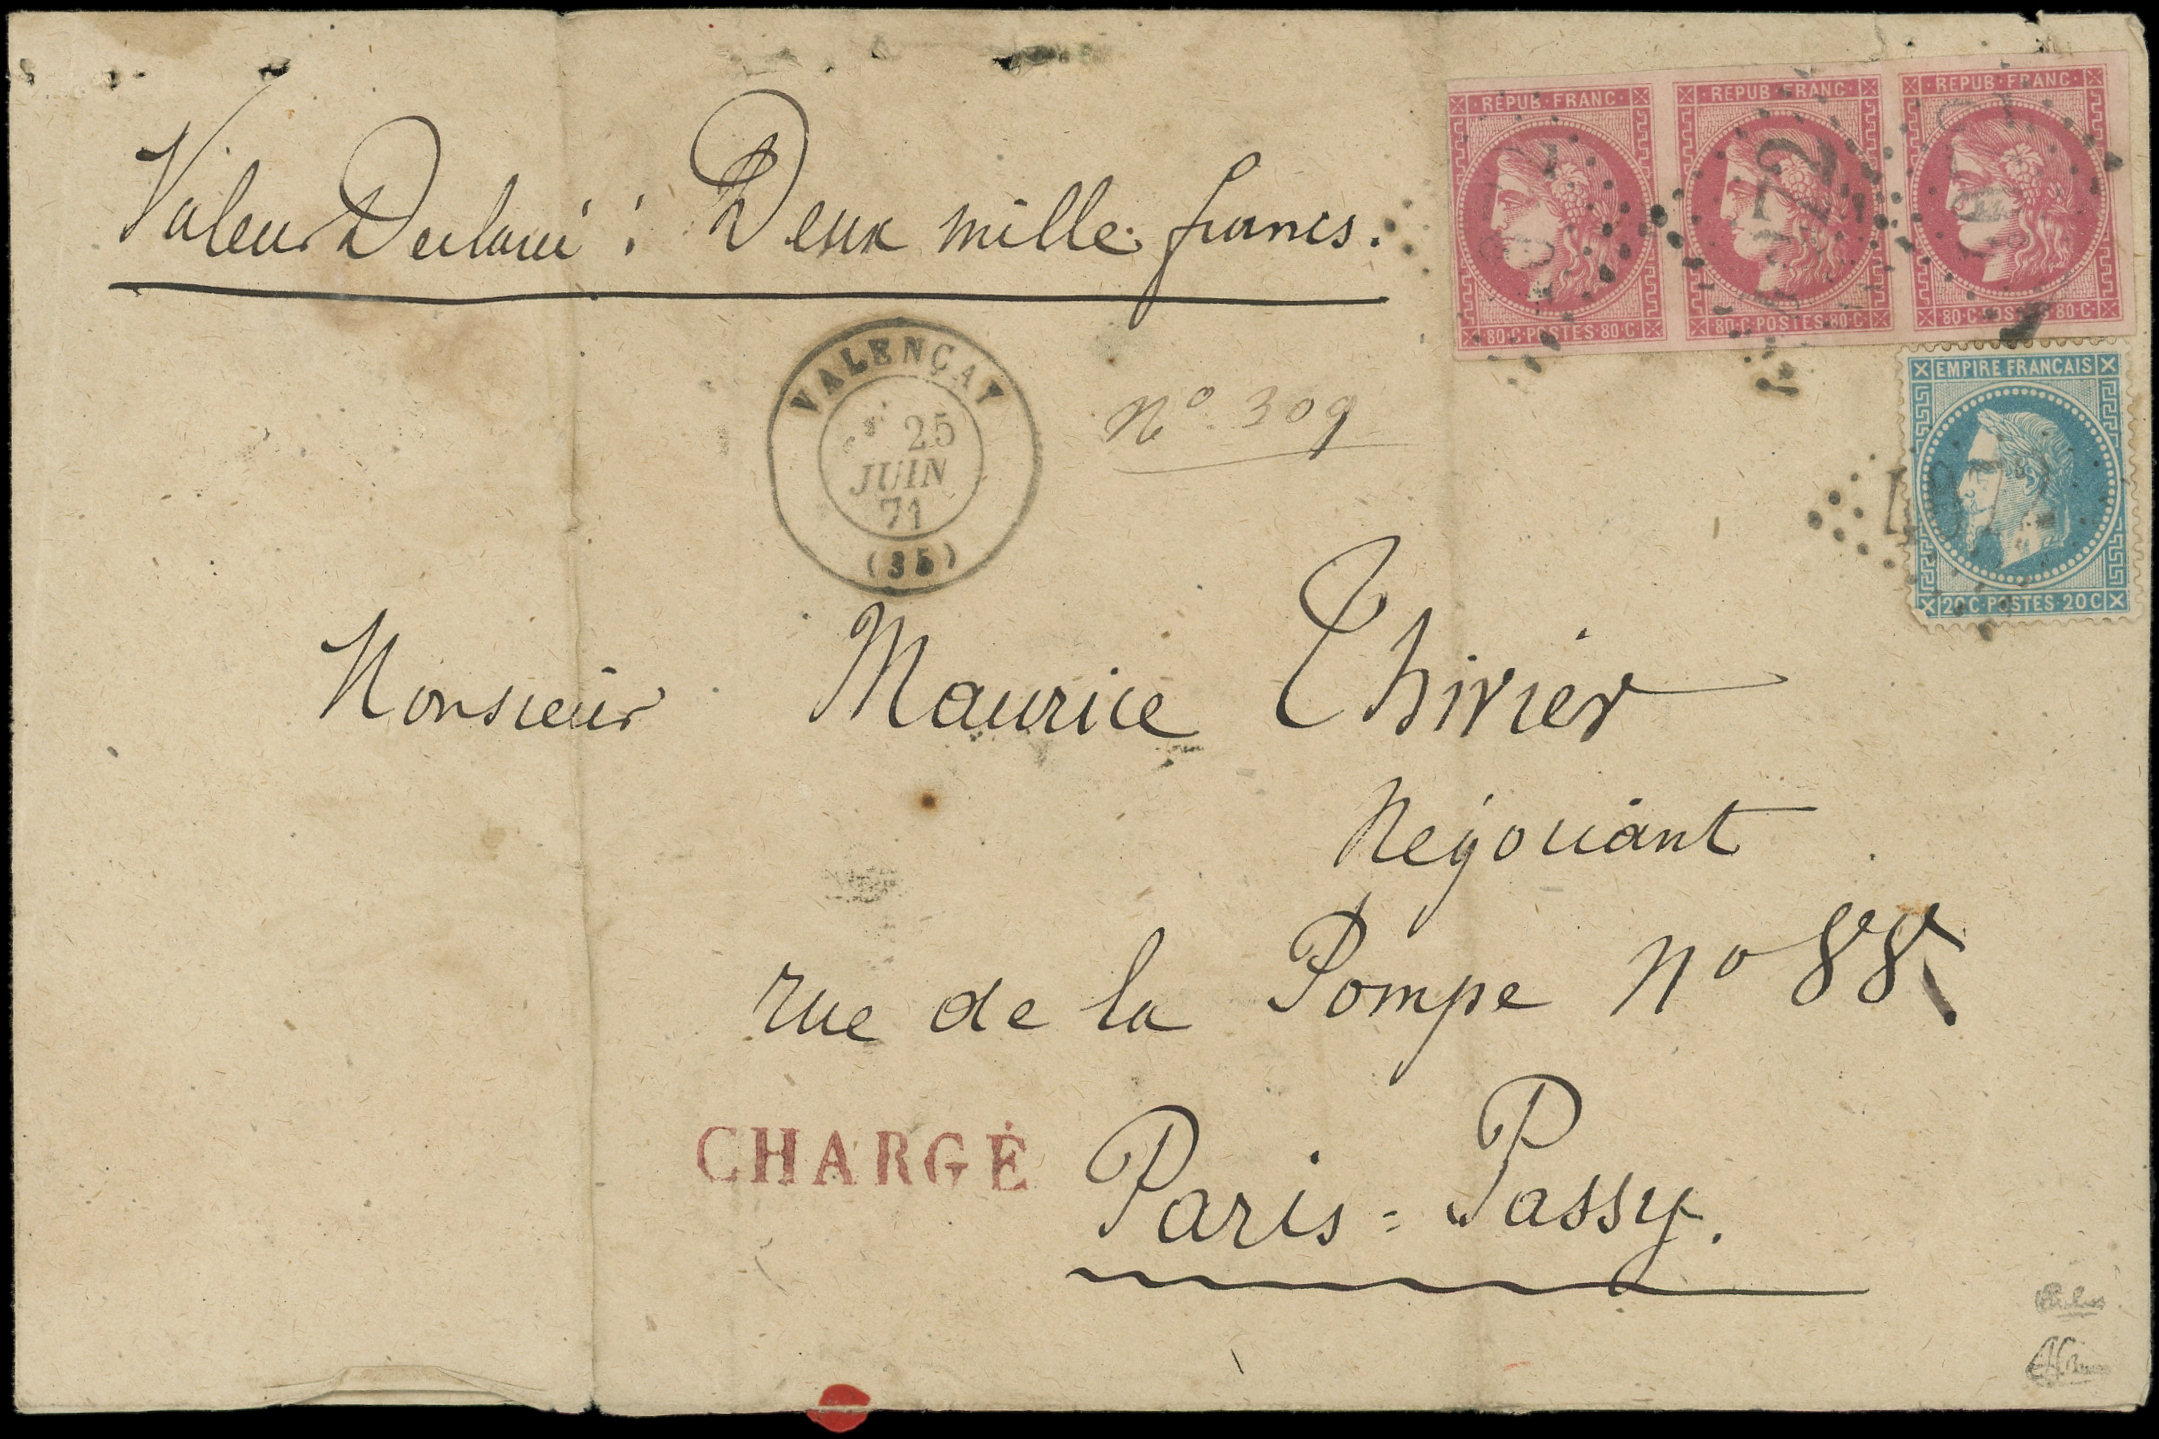 Valeur Declaré : Deux mille francs.
REPUB·FRANC· REPUB·FRANC· REPUB·FRANC·
80·C·POSTES·80·C· 80·C·POSTES·80·C· 80·C·POSTES·80·C·
EMPIRE FRANÇAIS
20C·POSTES·20C
4172
VALENÇAY
25
JUIN
71
(35)
No. 309
Monsieur Maurice Thirier
Négociant
rue de la Pompe No 88
CHARGÉ
Paris = Passy.